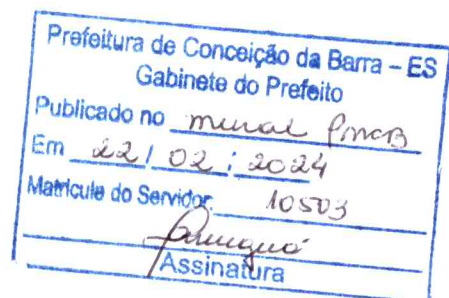 Prefeitura de Conceição da Barra – ES
Gabinete do Prefeito
Publicado no mural PMCB
Em 22 / 02 / 2024
Matricule do Servidor: 10503
Assinatura